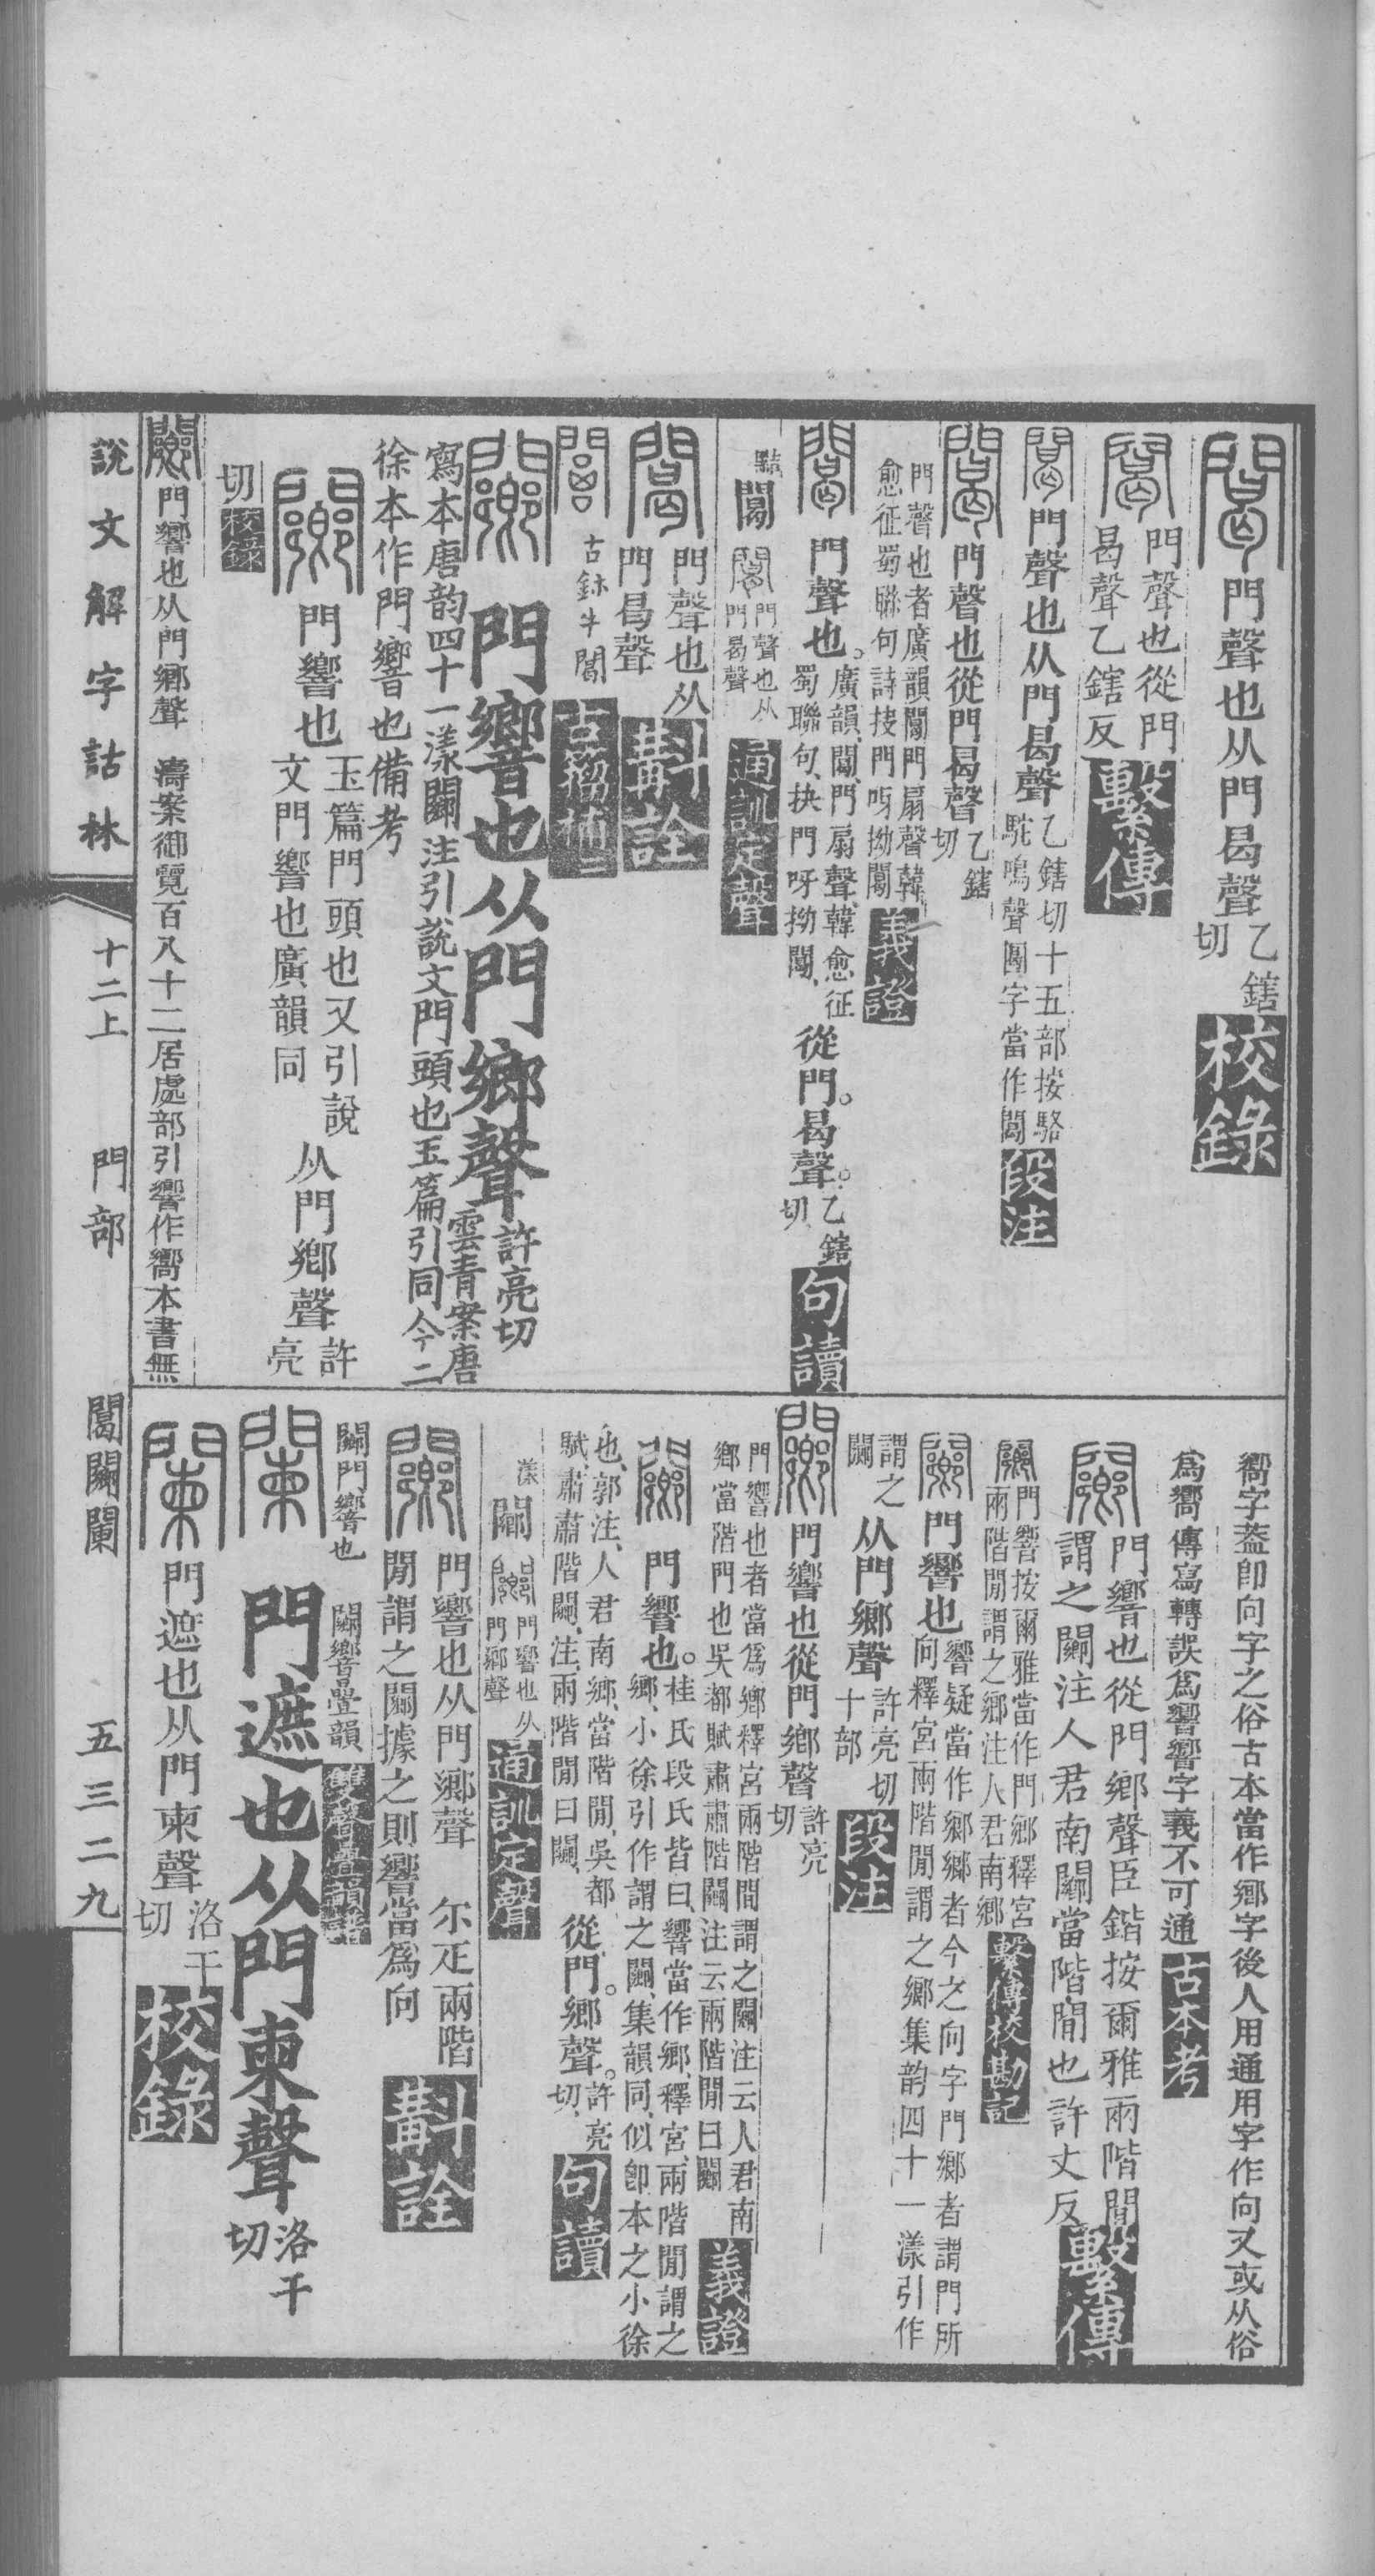 門聲也从門曷聲乙鎋切校錄
門聲也從門曷聲乙鎋反繫傳
門聲也从門曷聲乙鎋切十五部按駱駝鳴聲圔字當作閤段注
門聲也從門曷聲乙鎋切
門聲也者廣韻閜門扇聲韓愈征蜀聯句詩挾門呀拗閜義證
門聲也。廣韻、閜、門扇聲、韓愈征蜀聯句、抉門呀拗閜、從門。曷聲。乙鎋切、句讀
閜門聲也从門曷聲通訓定聲
門聲也从門曷聲斠詮
古鉨牛閜
門響也从門鄉聲許亮切
雲青案唐寫本唐韵四十一漾闀注引說文門頭也玉篇引同今二徐本作門響也備考
門響也玉篇門頭也又引說文門響也廣韻同从門鄉聲許亮切校錄
門響也从門鄉聲濤案御覽百八十二居處部引響作嚮本書無
嚮字葢卽向字之俗古本當作鄉字後人用通用字作向又或从俗
爲嚮傳寫轉誤爲響響字義不可通古本考
門響也從門鄉聲臣鍇按爾雅兩階閒謂之闀注人君南闀當階閒也許丈反繫傳
門響按爾雅當作門鄉釋宮兩階閒謂之鄉注人君南鄉繫傳校勘記
門響也響疑當作鄉鄉者今之向字門鄉者謂門所向釋宮兩階閒謂之鄉集韵四十一漾引作謂之闀从門鄉聲許亮切十部段注
門響也從門鄉聲許亮切
門響也者當爲鄉釋宮兩階間謂之闀注云人君南鄉當階門也吳都賦肅肅階闀注云兩階閒曰闀義證
門響也。桂氏段氏皆曰、響當作鄉、釋宮、兩階閒謂之鄉、小徐引作謂之闀、集韻同、似卽本之小徐也、郭注、人君南鄉、當階閒、吳都賦、肅肅階闀、注、兩階閒曰闀、從門。鄉聲。許亮切、句讀
漾闀門響也从門鄉聲通訓定聲
門響也从門鄉聲尒疋兩階閒謂之闀據之則響當爲向斠詮
闀門響也闀響疊韻
門遮也从門柬聲洛干切
門遮也从門柬聲洛干切校錄
說文解字詁林十二上門部閜闀闌五三二九